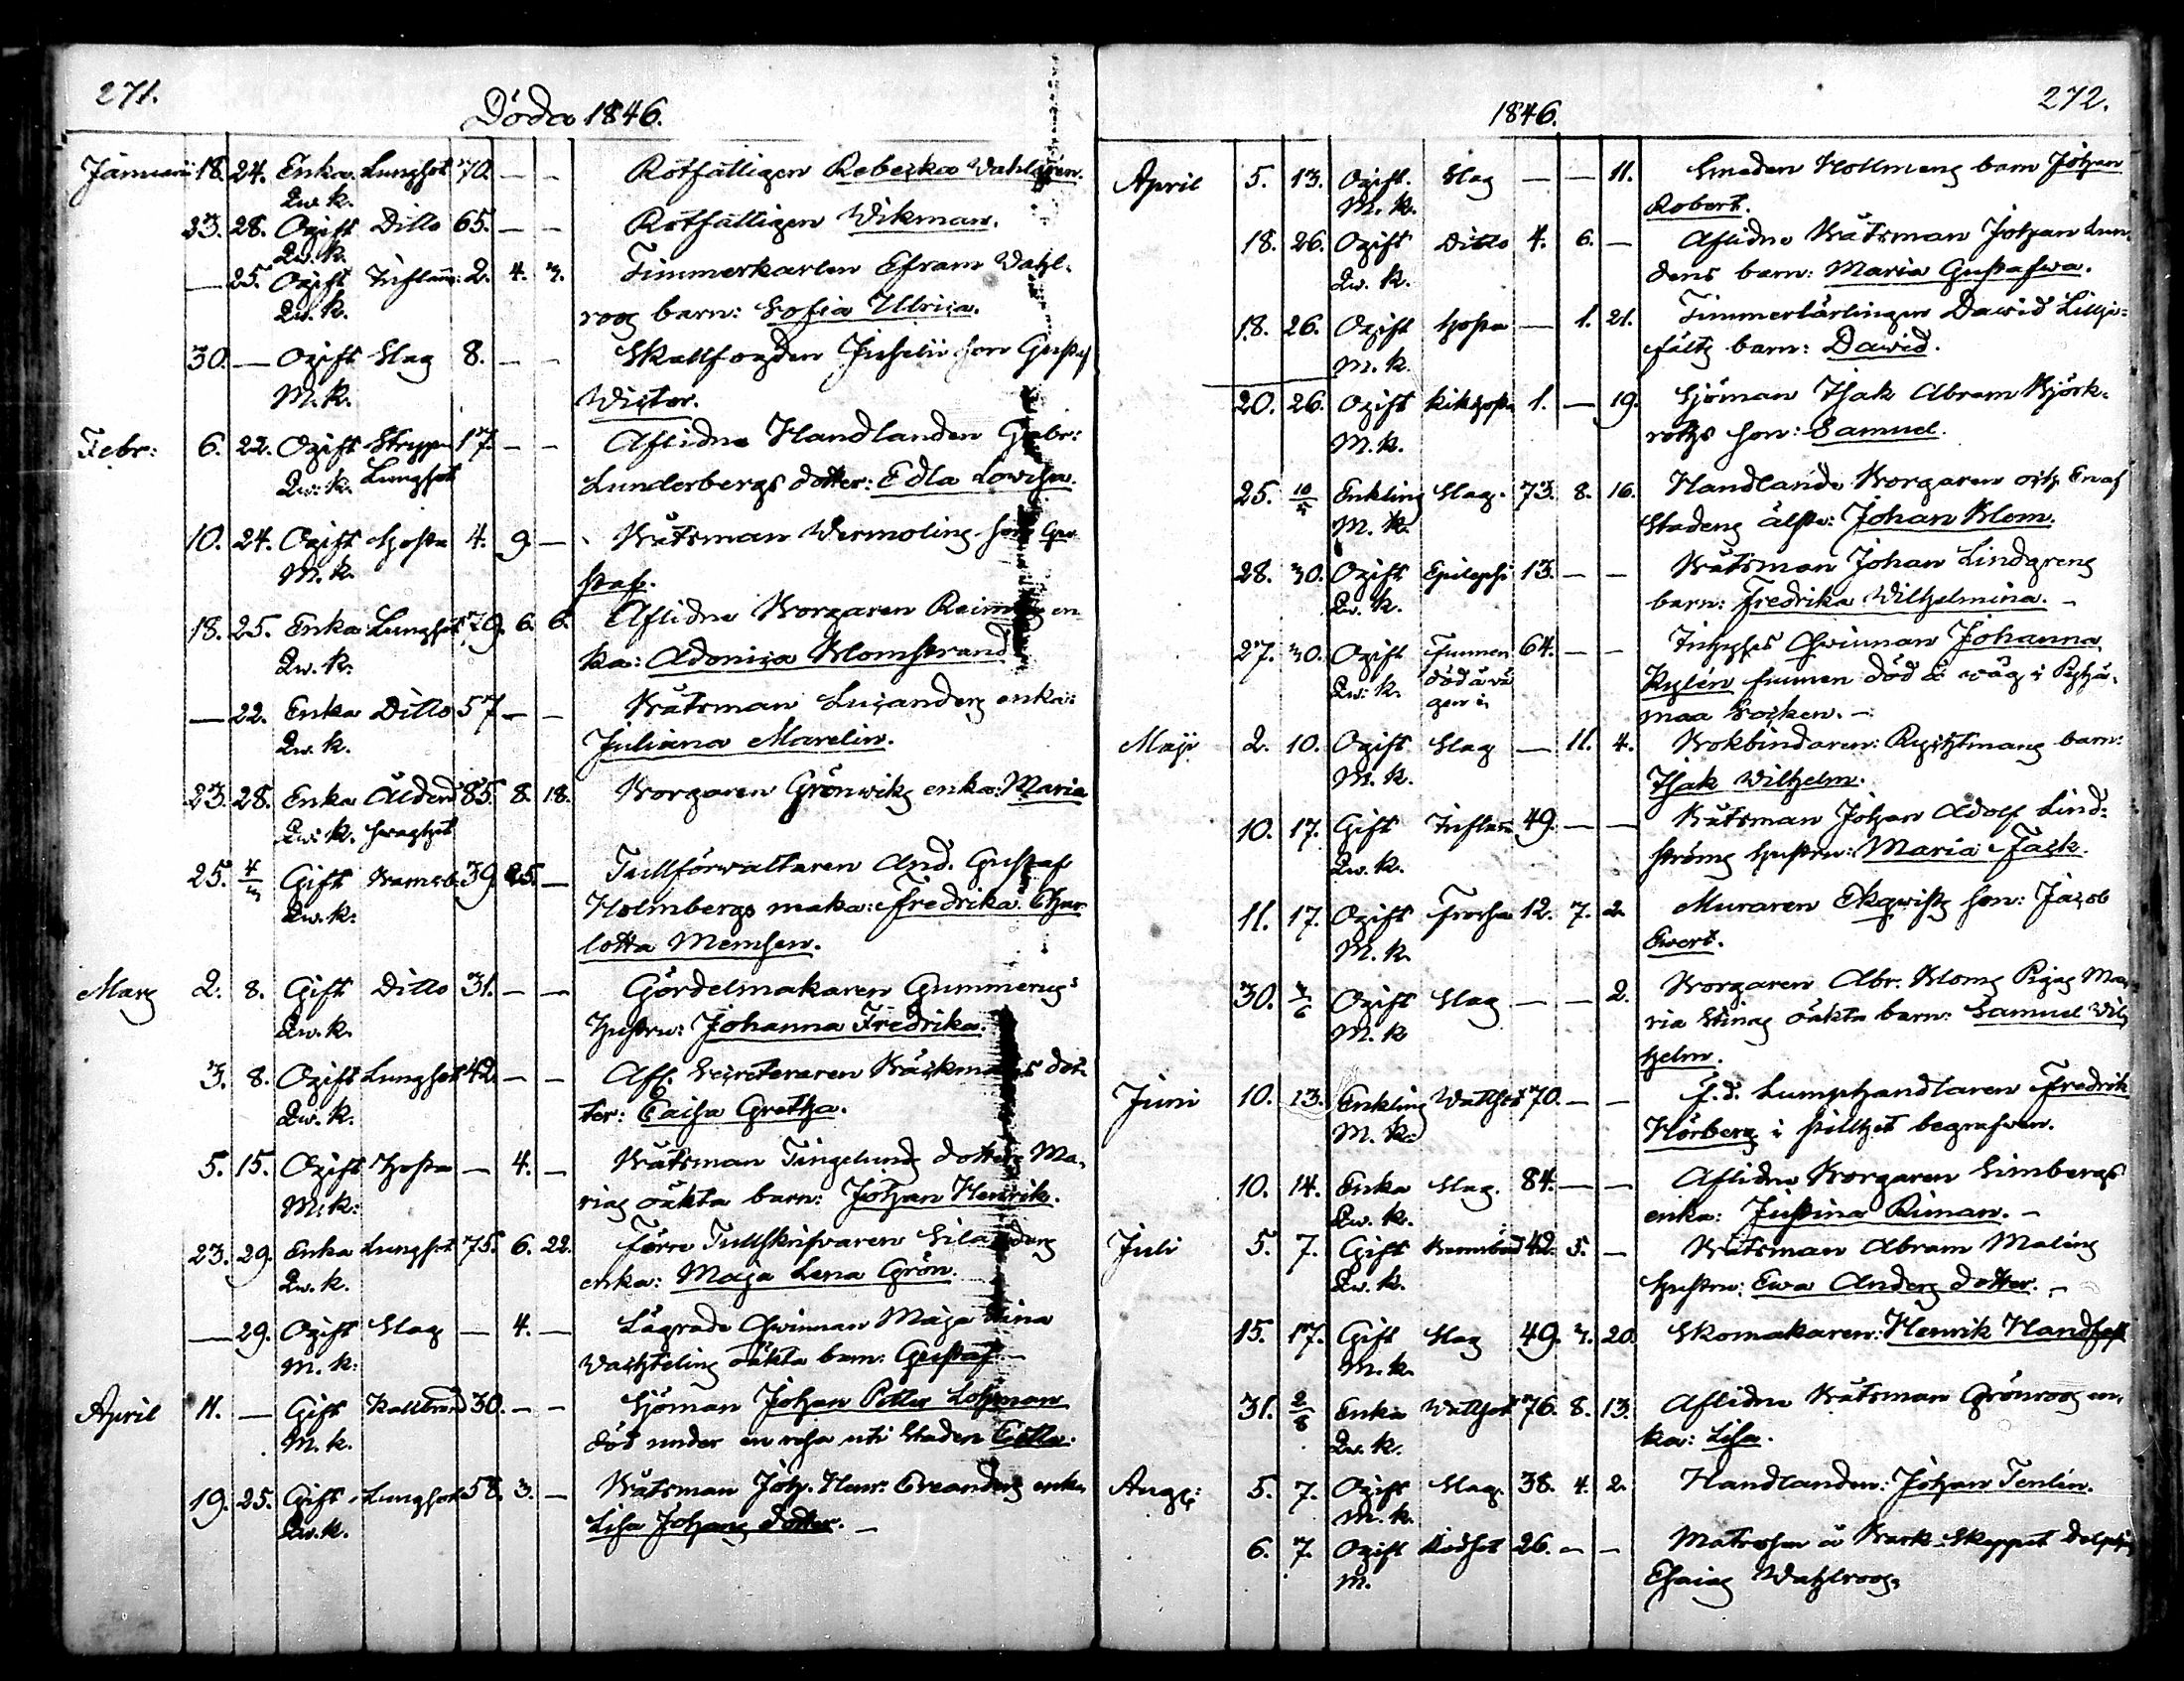 271.
Döda 1846.
Januarii 18. 24. Enka Lungsot 70. — — Rotfattigen Rebecka Wahlgren.
Qw. k.
23. 28. Ogift Ditto 65. — — Rotfattigen Wikman.
Qw. k.
— 25. Ogift Inflam: 2. 4. 3. Timmerkarlen Efram Wahl-
Qw. k. roos barn: Sofia Ulrica.
30. — Ogift Slag 8. — — Skallfogden Juselii son Gustaf
M. k. Victor.
Febr: 6. 22. Ogift Stryp 17. — — Aflidne Handlanden Gabr:
Qw. k. Lungsot Lunderbergs dotter: Edla Lovisa.
10. 24. Ogift Hosta 4. 9. — Båtsman Vermolins son Gu-
M. k. staf.
18. 25. Enka Lungsot 79. 6. 6. Aflidne Borgaren en-
Qw. k. ka: Adonica Blomstrand
— 22. Enka Ditto 57 — — Båtsman Lucanders enka:
Qw. k. Juliana Marelin.
23. 28. Enka Ålderd 85. 8. 18. Borgaren Grönwiks enka: Maria
Qw. k. swaghet
25. 4/3 Gift Barnsb. 39 25. — Tullförvaltaren And. Gustaf
Qw. k: Holmbergs maka: Fredrika Char-
lotta Memsen.
Mars 2. 8. Gift Ditto 31. — — Gördelmakaren Gummerus
Qw. k. hustru: Johanna Fredrika.
3. 8. Ogift Lungsot 42. — — Afl. Secreteraren Bäckmans dot-
Qw. k. ter: Caisa Gretha.
5. 15. Ogift Hosta — 4. — Båtsman Tingelunds dotters Ma-
M. k: rias oäkta barn: Johan Henrik.
23. 29. Enka Lungsot 75. 6. 22. Förre Tullskrifvaren Silanders
Qw. k. enka: Maja Lena Grön.
— 29. Ogift Slag — 4. — Lägrade Qwinnan Maja Stina
M. k: Wachtelins oäkta barn: Gustaf. —
April 11. — Gift Kallbrand 30. — — Sjöman Johan Petter Lohman
M. k. död under en resa uti Staden
19. 25. Gift Lungsot 58. 3. — Båtsman Joh. Henr: enka
Qw. k. Lisa Johans dotter. —
1846.
272.
April 5. 13. Ogift. Slag — — 11. Smeden Hollmens barn Johan
M. k. Robert.
18. 26. Ogift Ditto 4. 6. — Aflidne Båtsman Johan Lun-
Qw. k. dens barn: Maria Gustafwa.
18. 26. Ogift Hosta — 1. 21. Timmerlärlingen David Lillje-
M. k. fälts barn: David.
20. 26. Ogift Kikhosta 1. — 19. Sjöman Isak Abram Björk-
M. k. roths son: Samuel.
25. 10/5 Enkling Slag. 73. 8. 16. Handlande Borgaren och en af
M. k. Stadens älste: Johan Blom.
28. 30. Ogift Epilepsi 13. — — Båtsman Johan Lindgrens
Qw. k. barn: Fredrika Wilhelmina. —
27. 30. Ogift Funnen 64. — — Qwinnan Johanna
Qw. k. död å vä- Kylén funnen död å väg i Pyhä-
gen i maa Socken. —
Maji 2. 10. Ogift Slag — 11. 4. Bokbindaren: barn:
M. k. Isak Wilhelm.
10. 17. Gift Inflam 49. — — Båtsman Johan Adolf Lind-
Qw. k. ströms hustru: Maria Fack.
11. 17. Ogift Frossa 12. 7. 2. Muraren Ekqwists son: Jacob
M. k. Evert.
30. 7/6 Ogift Slag — — 2. Borgaren Abr. Bloms Pigas Ma-
M. k ria Stinas oäkta barn: Samuel Wil-
helm.
Juni 10. 13. Enkling Wattsot 70. — — F. d. Lumphandlaren Fredrik
M. k: Hörberg i stillhet begrafven.
10. 14. Enka Slag. 84. — — Aflidne Borgaren Simbergs
Qw. k. enka: Justina Riman. —
Juli 5. 7. Gift Barnsbörd 42. 5. — Båtsman Abram Malins
Qw. k. hustru: Ewa Anders dotter. —
15. 17. Gift Slag 49. 3. 20. Skomakaren: Henrik Handfast
M. k.
31. 2/8 Enka Wattsot 76. 8. 13. Aflidne Båtsman Grönroos en-
Qw. k. ka: Lisa.
Aug: 5. 7. Ogift Slag. 38. 4. 2. Handlanden: Johan Tenlén.
M. k.
6. 7. Ogift Rödsot 26. — — Matrosen å Bark-Skeppet Delphin
M. Esaias Wahlroos.